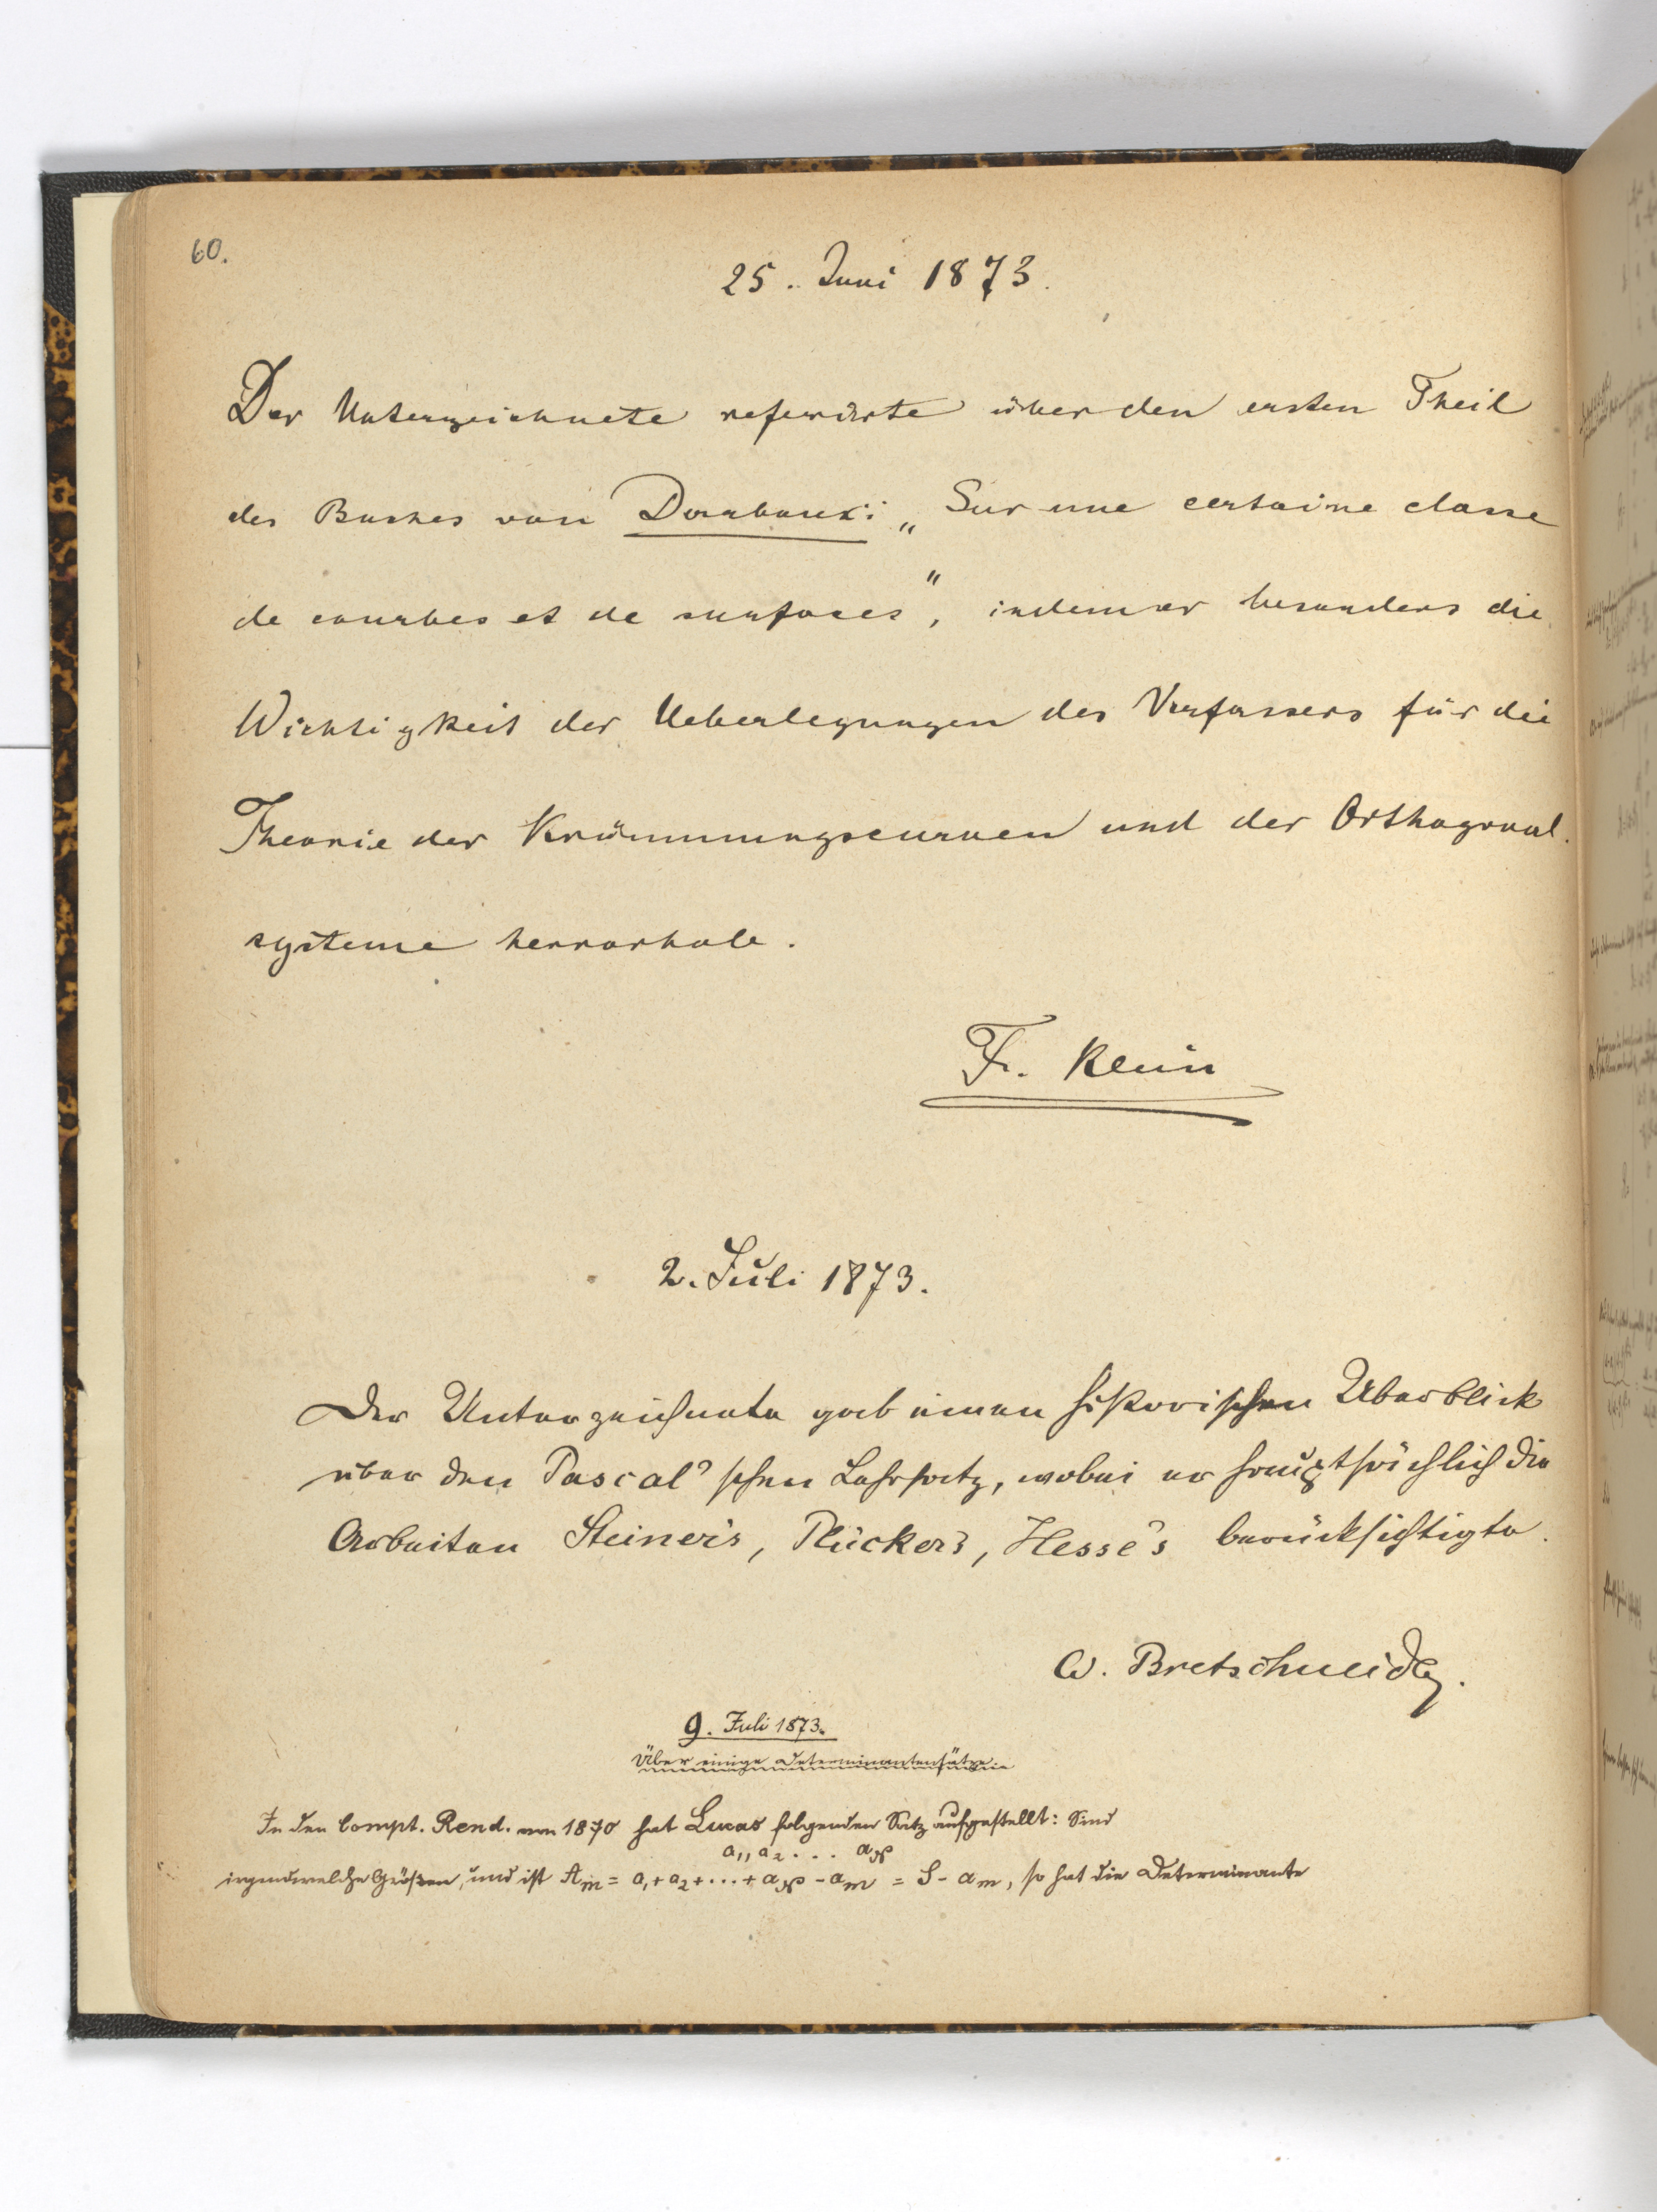 60.
25. Juni 1873.
Der Unterzeichnete referirte über den ersten Theil
des Buches von Darboux: „Sur une certaine classe
de courbes et de surfaces“, indem er besonders die
Wichtigkeit der Ueberlegungen des Verfassers für die
Theorie der Krümmungscurven und der Orthogonal-
systeme hervorhob.
F. Klein
2. Juli 1873.
Der Unterzeichnete gab einen historischen Überblick
über den Pascal'schen Lehrsatz, wobei er hauptsächlich die
Arbeiten Steiner's, Plücker's, Hesse's berücksichtigte.
W. Bretschneider.
9. Juli 1873.
Über einige Determinantensätze.
In den Compt. Rend. von 1870 hat Lucas folgenden Satz aufgestellt: Sind
a₁, a₂ . . . aₙ
irgendwelche Größen, und ist Aₘ = a₁ + a₂ + ... + aₙ - aₘ = S - aₘ, so hat die Determinante